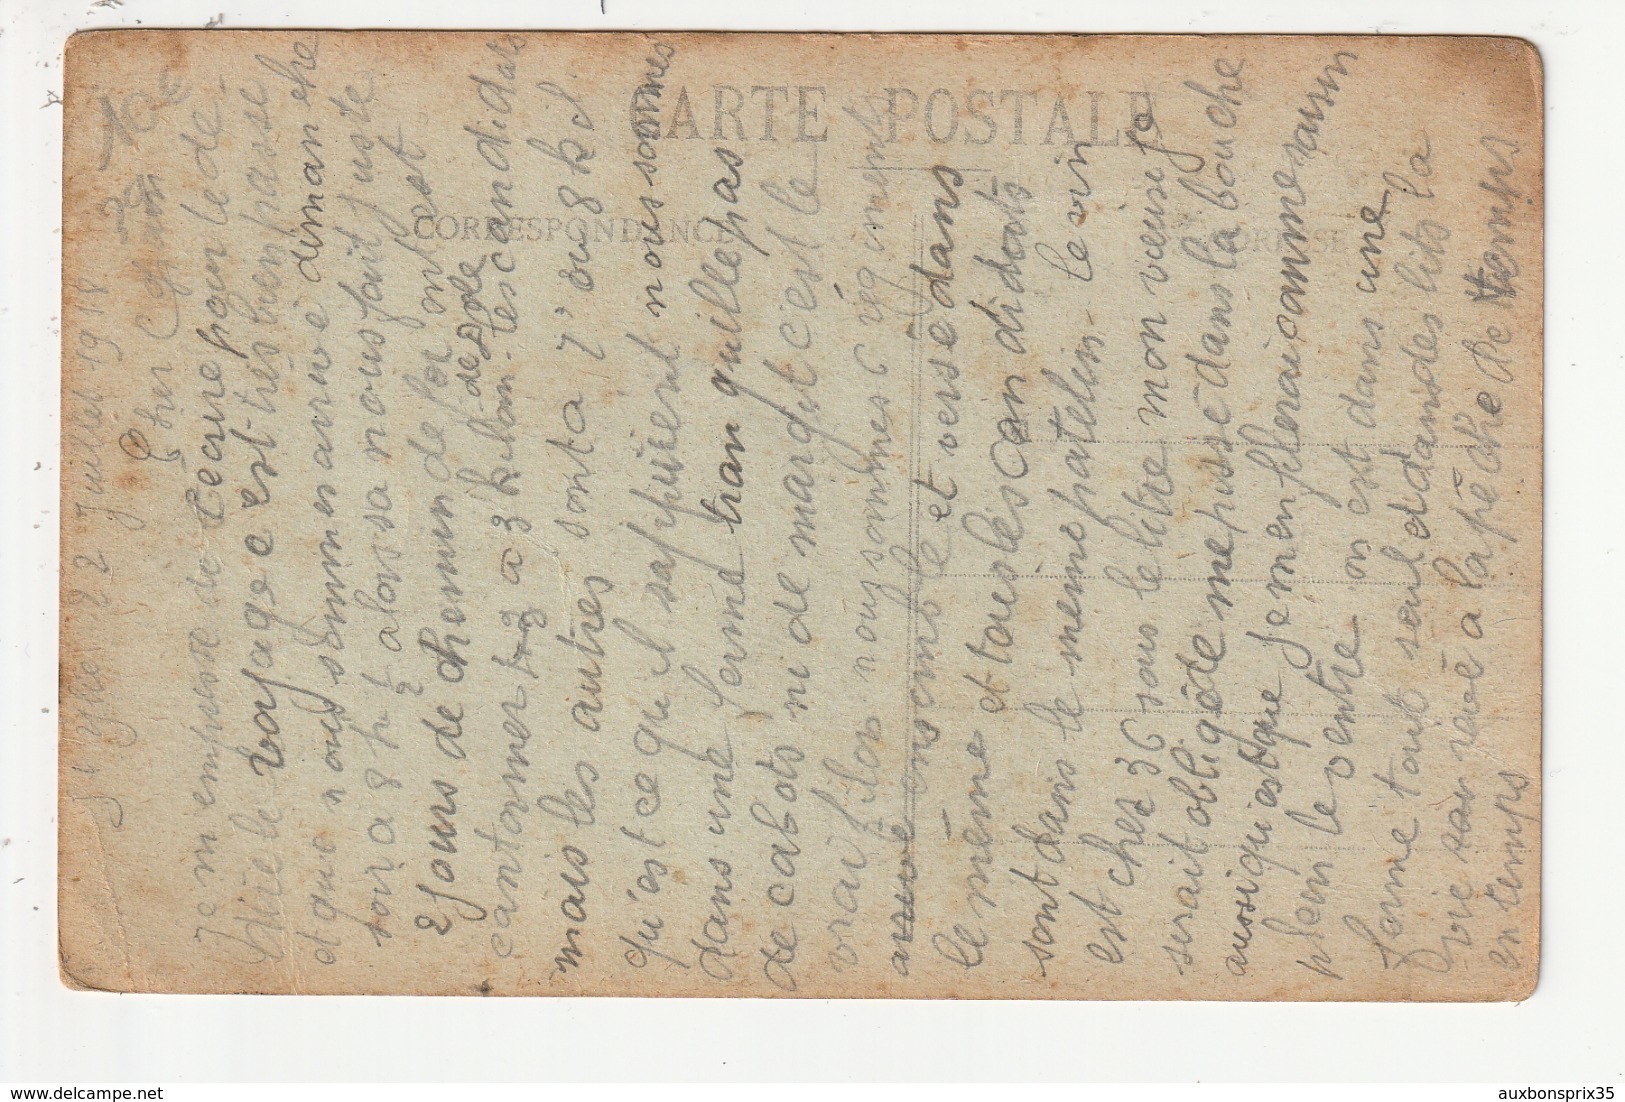 22 Juillet 1918
Cher Copain
Je m'empresse de técrire pour te de-
voyage c est très bien passé
et que nous sommes arrivé dimanche
soir a 8 h ½ alors sa nous fait juste
2 jours de chemin de fer ont est
cantonner a 3 kilom - de Dole les candidats
mais les autres sont a 7 ou 8 kil
qu'est ce qu il sappuient nous sommes
dans une ferme tranquille pas
de cabots ni de margit c'est le
vrai filon nous sommes 6 régiments
arrivé ensemble et verse dans
le même et tous les candidats
sont dans le meme patelin - le vin
est cher 36 sous le litre mon vieux je
serait obligé de me pisse dans la bouche
aussi qu'est que je m enfilerai comme rouin
plein le ventre on est dans une
ferme tout seul et dans des lits la
vie sar revé a la pêche de temps
en temps
CARTE POSTALE
CORRESPONDANCE
ADRESSE
auxbonsprix35